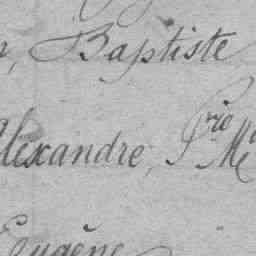 , Baptiste
Alexandre, P^rie M
Eugène